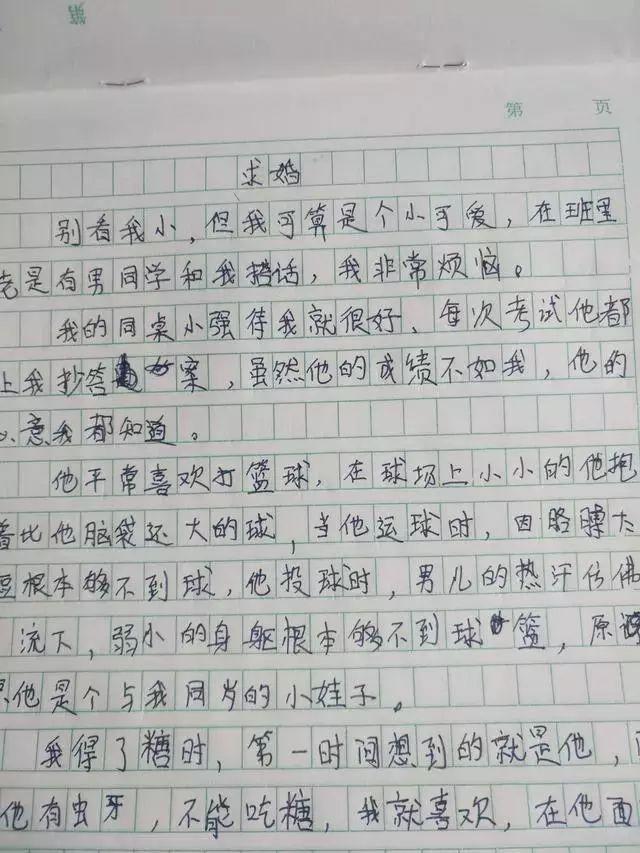 第 页
求婚
别看我小，但我可算是个小可爱，在班里
老是有男同学和我搭话，我非常烦恼。
我的同桌小强待我就很好，每次考试他都
上我抄答案，虽然他的成绩不如我，他的
心意我都知道。
他平常喜欢打篮球，在球场上小小的他抱
着比他脑袋还大的球，当他运球时，因胳膊太
短根本够不到球，他投球时，男儿的热汗仿佛
流下，弱小的身躯根本够不到球篮，原
他是个与我同岁的小娃子。
我得了糖时，第一时间想到的就是他，
他有虫牙，不能吃糖，我就喜欢，在他面